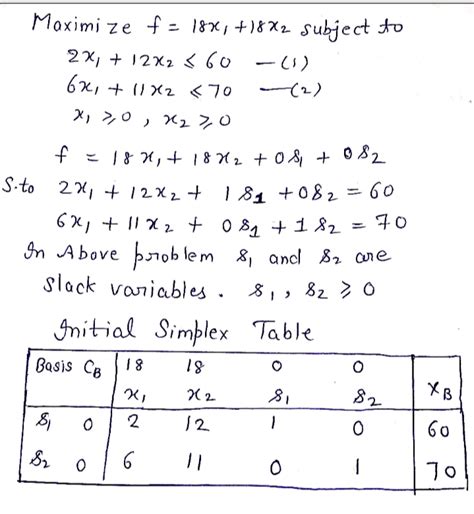 Maximize f = 18x₁ + 18x₂ subject to
2x₁ + 12x₂ ≤ 60 —(1)
6x₁ + 11x₂ ≤ 70 —(2)
x₁ ≥ 0, x₂ ≥ 0
f = 18x₁ + 18x₂ + 0s₁ + 0s₂
S.to 2x₁ + 12x₂ + 1s₁ + 0s₂ = 60
6x₁ + 11x₂ + 0s₁ + 1s₂ = 70
In Above problem s₁ and s₂ are
slack variables. s₁, s₂ ≥ 0
Initial Simplex Table
Basis C_B 18 18 0 0
x₁ x₂ s₁ s₂ X_B
s₁ 0 2 12 1 0 60
s₂ 0 6 11 0 1 70